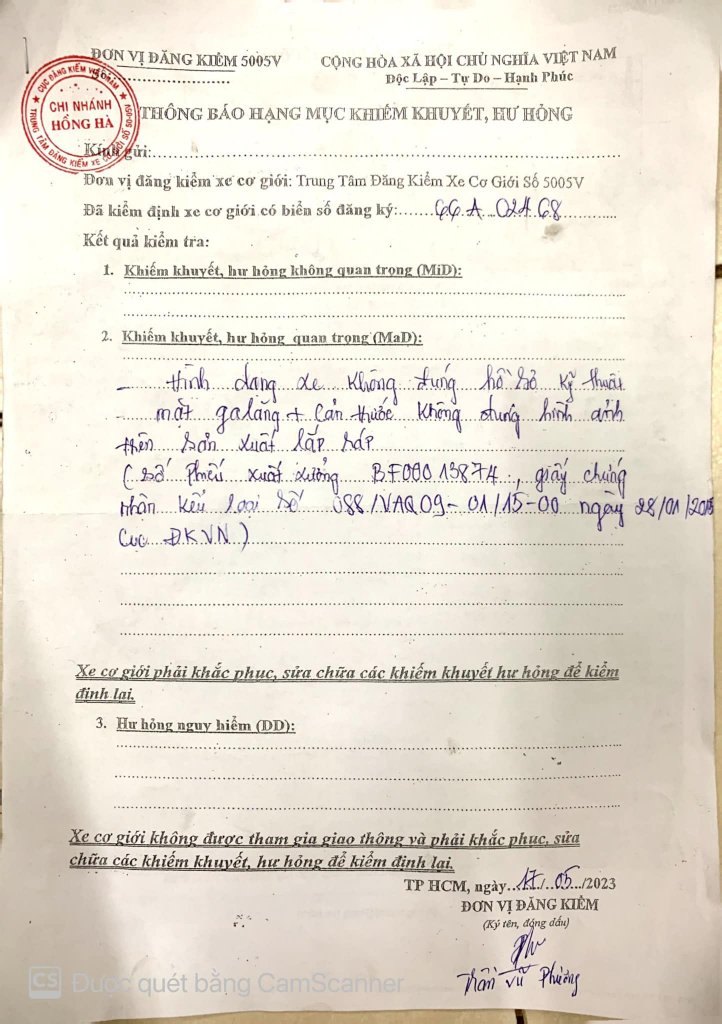 ĐƠN VỊ ĐĂNG KIỂM 5005V
CỘNG HÒA XÃ HỘI CHỦ NGHĨA VIỆT NAM
Số:
Độc Lập – Tự Do – Hạnh Phúc
CỤC ĐĂNG KIỂM VIỆT NAM
CHI NHÁNH
HỒNG HÀ
TRUNG TÂM ĐĂNG KIỂM XE CƠ GIỚI SỐ 50-05V
THÔNG BÁO HẠNG MỤC KHIẾM KHUYẾT, HƯ HỎNG
Kính gửi:
Đơn vị đăng kiểm xe cơ giới: Trung Tâm Đăng Kiểm Xe Cơ Giới Số 5005V
Đã kiểm định xe cơ giới có biển số đăng ký: 66A 02468
Kết quả kiểm tra:
1. Khiếm khuyết, hư hỏng không quan trọng (MiD):
2. Khiếm khuyết, hư hỏng quan trọng (MaD):
– hình dạng xe không đúng hồ sơ kỹ thuật
– mặt galăng + Cản trước không đúng hình ảnh
trên sản xuất lắp ráp
( số phiếu xuất xưởng BF0001 3874, giấy chứng
nhận kiểu loại số 088/VAQ09-01/15-00 ngày 28/01/2015
Cục ĐKVN )
Xe cơ giới phải khắc phục, sửa chữa các khiếm khuyết hư hỏng để kiểm
định lại.
3. Hư hỏng nguy hiểm (DD):
Xe cơ giới không được tham gia giao thông và phải khắc phục, sửa
chữa các khiếm khuyết, hư hỏng để kiểm định lại.
TP HCM, ngày 17/05/2023
ĐƠN VỊ ĐĂNG KIỂM
(Ký tên, đóng dấu)
Trần Vũ Phương
CS Được quét bằng CamScanner